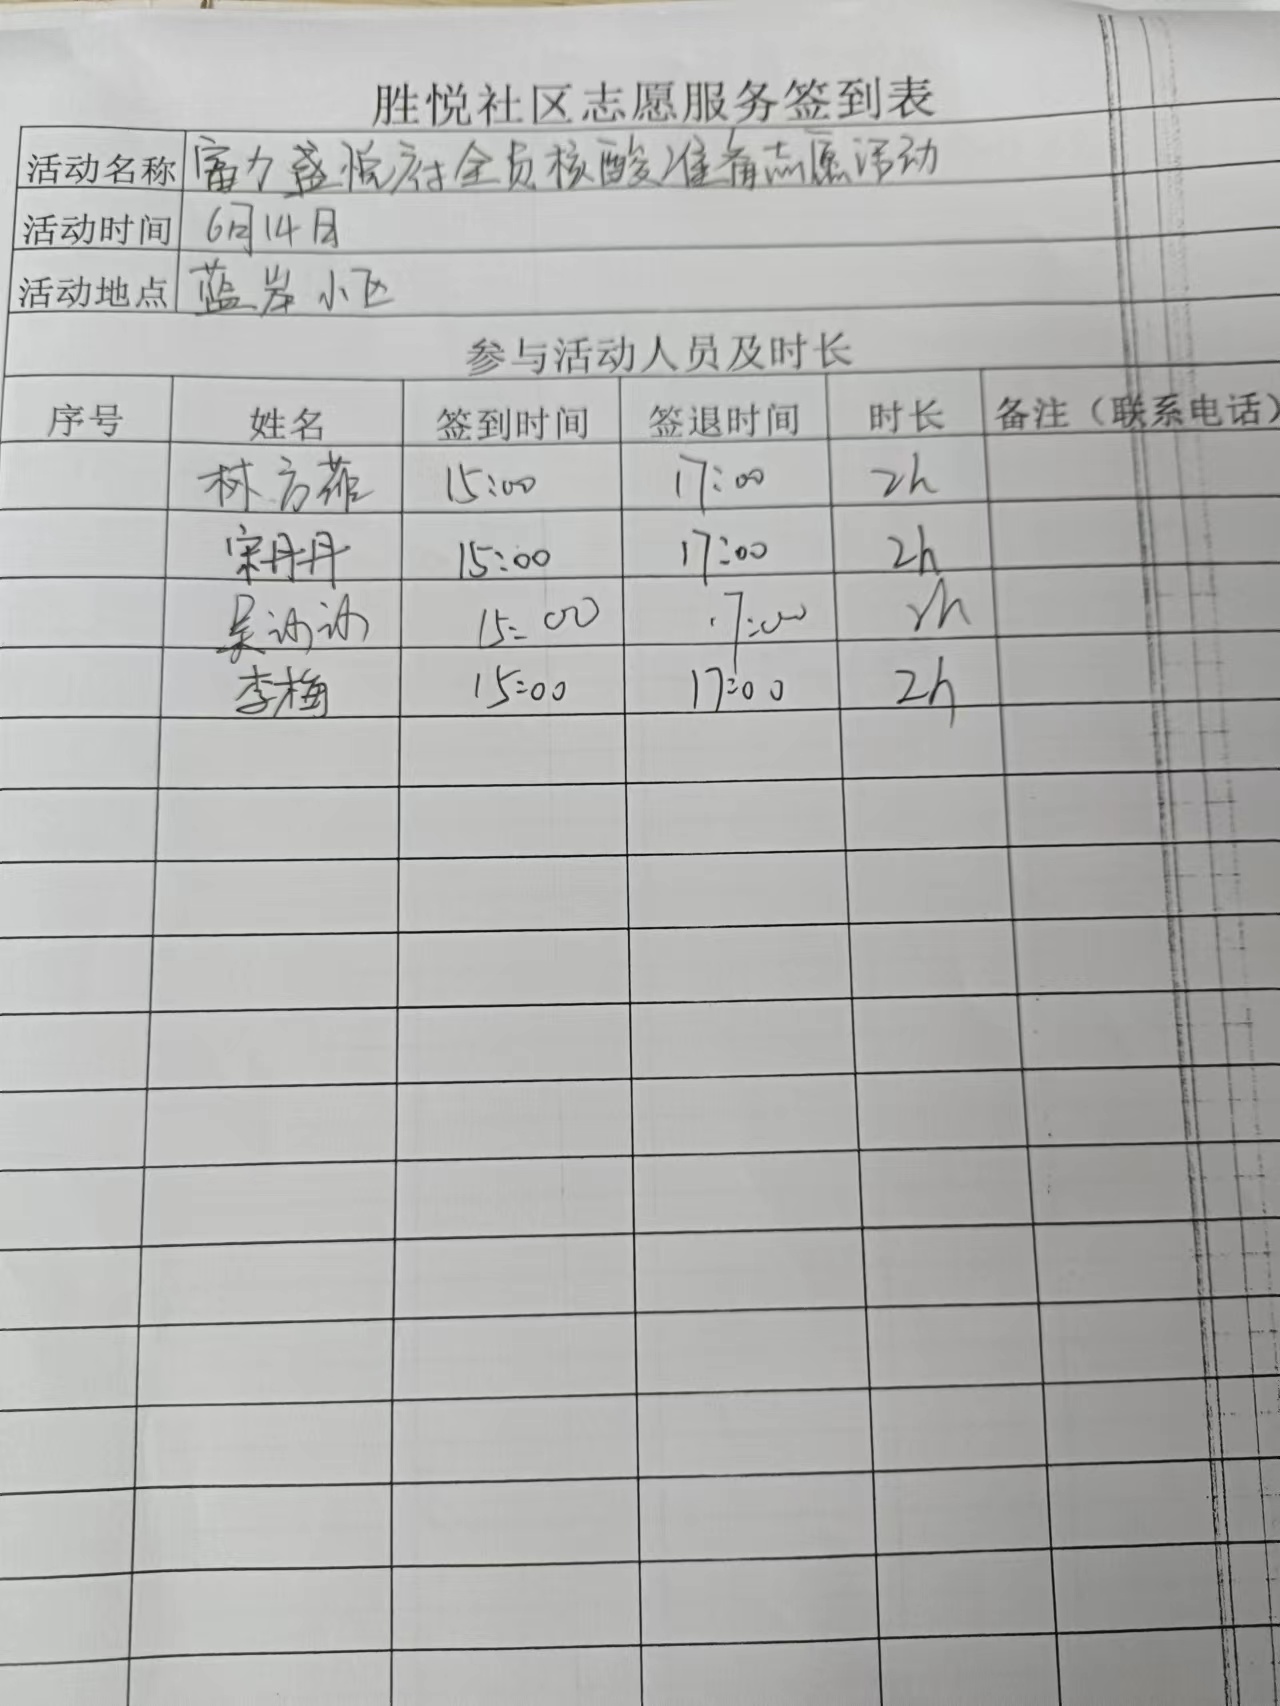 胜悦社区志愿服务签到表
活动名称 富力盛悦府全员核酸准备志愿活动
活动时间 6月14日
活动地点 蓝岸小区
参与活动人员及时长
序号 姓名 签到时间 签退时间 时长 备注（联系电话）
林方茹 15:00 17:00 2h
宋丹丹 15:00 17:00 2h
吴 15:00 17:00 2h
李梅 15:00 17:00 2h